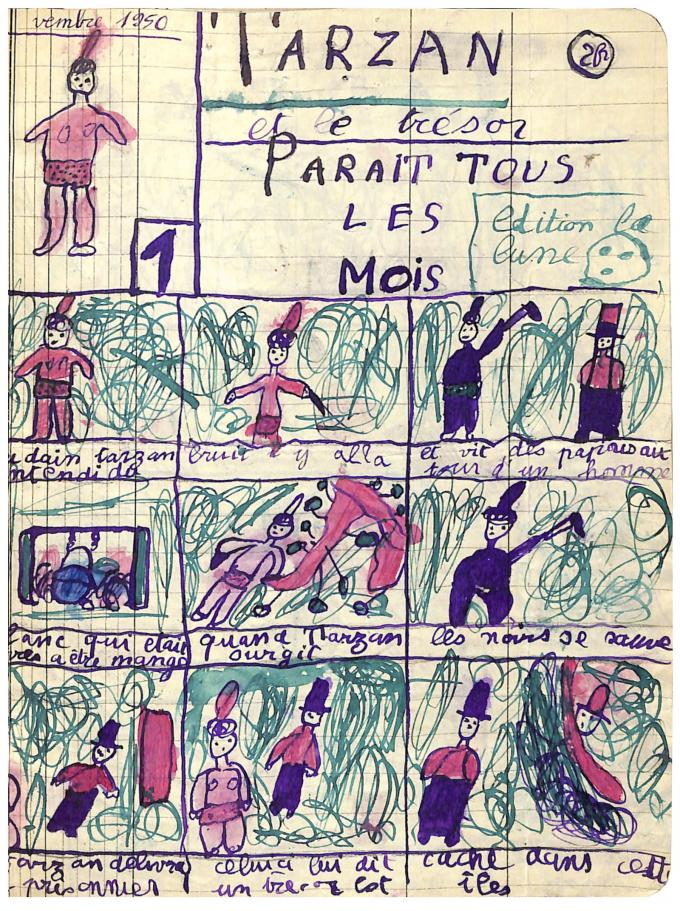 vembre 1950
TARZAN
2fr
et le trésor
PARAIT TOUS
LES
MOIS
1
edition la
lune
udain tarzan
ntendi de
bruit i y alla
et vit des papious au
tour d'un homme
lanc qui était
près a être mangé
quand Tarzan
surgit
les noirs se sauve
Tarzan délivra
prisonnier
celuici lui dit
un tresor est
caché dans cett
îles